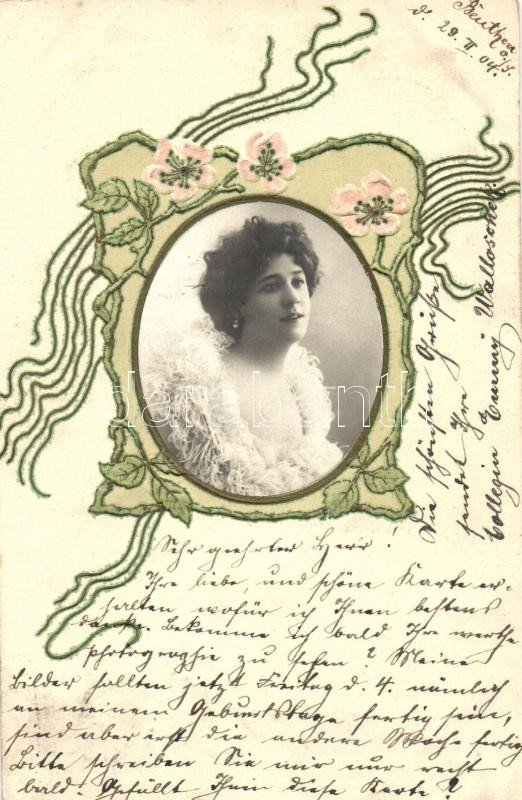 Beuthen o/S.
d. 29. II 04.
Sehr geehrter Herr!
Ihre liebe, und schöne Karte er-
halten wofür ich Ihnen bestens
danke. Bekomme ich bald Ihre werthe
Photographie zu sehen? Meine
Bilder sollten jetzt Freitag d. 4. nämlich
an meinem Geburtstage fertig sein,
sind aber erst die andere Woche fertig
Bitte schreiben Sie mir nur recht
bald. Gefällt Ihnen diese Karte?
Die schönsten Grüße
sendet Ihre
Collegin Emmy
darabanth